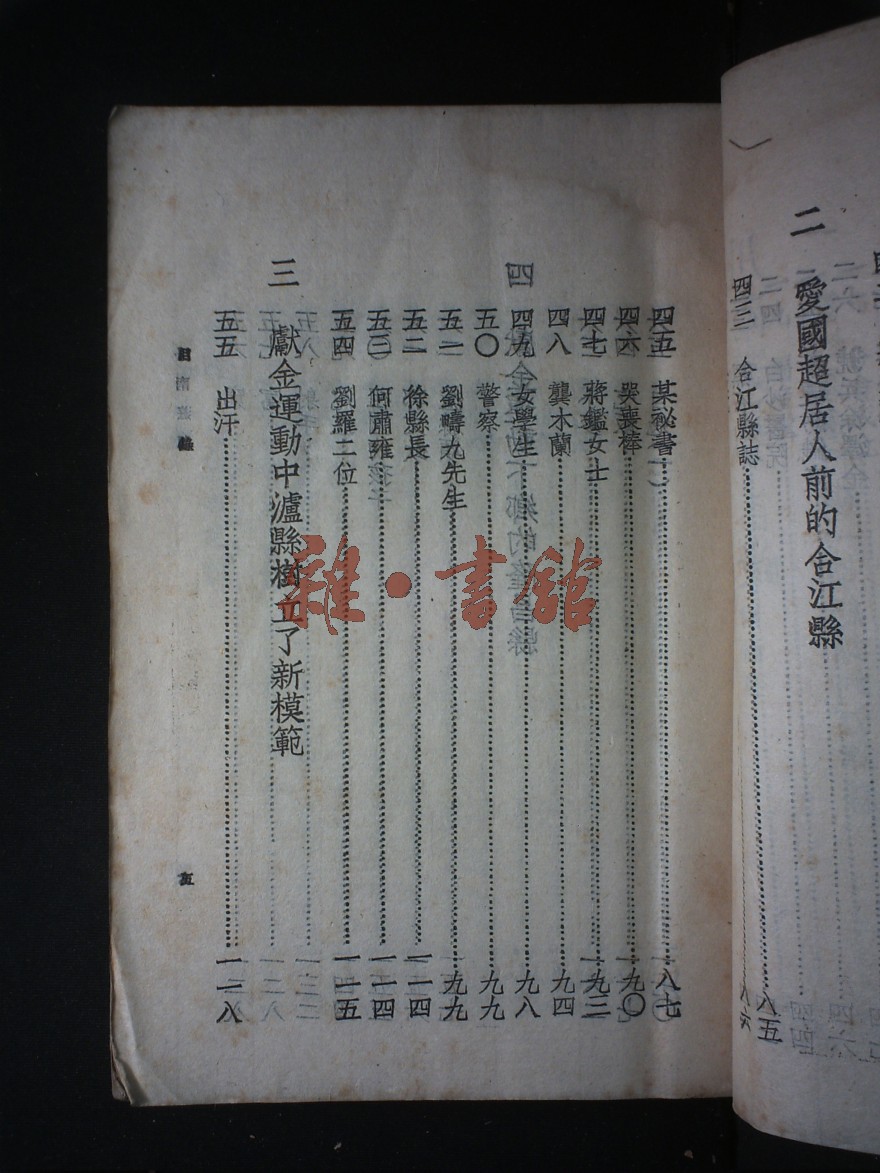 二 愛國超居人前的合江縣 八五
四三 合江縣誌 八六
四五 某祕書 八七
四六 哭喪棒 九〇
四七 蔣鑑女士 九三
四八 龔木蘭 九四
四九 女學生 九八
五〇 警察 九九
五一 劉疇九先生 九九
五二 徐縣長 一一四
五三 何肅雍 一一四
五四 劉羅二位 一一五
三 獻金運動中瀘縣樹立了新模範
五五 出汗 一一八
五
雜·書館